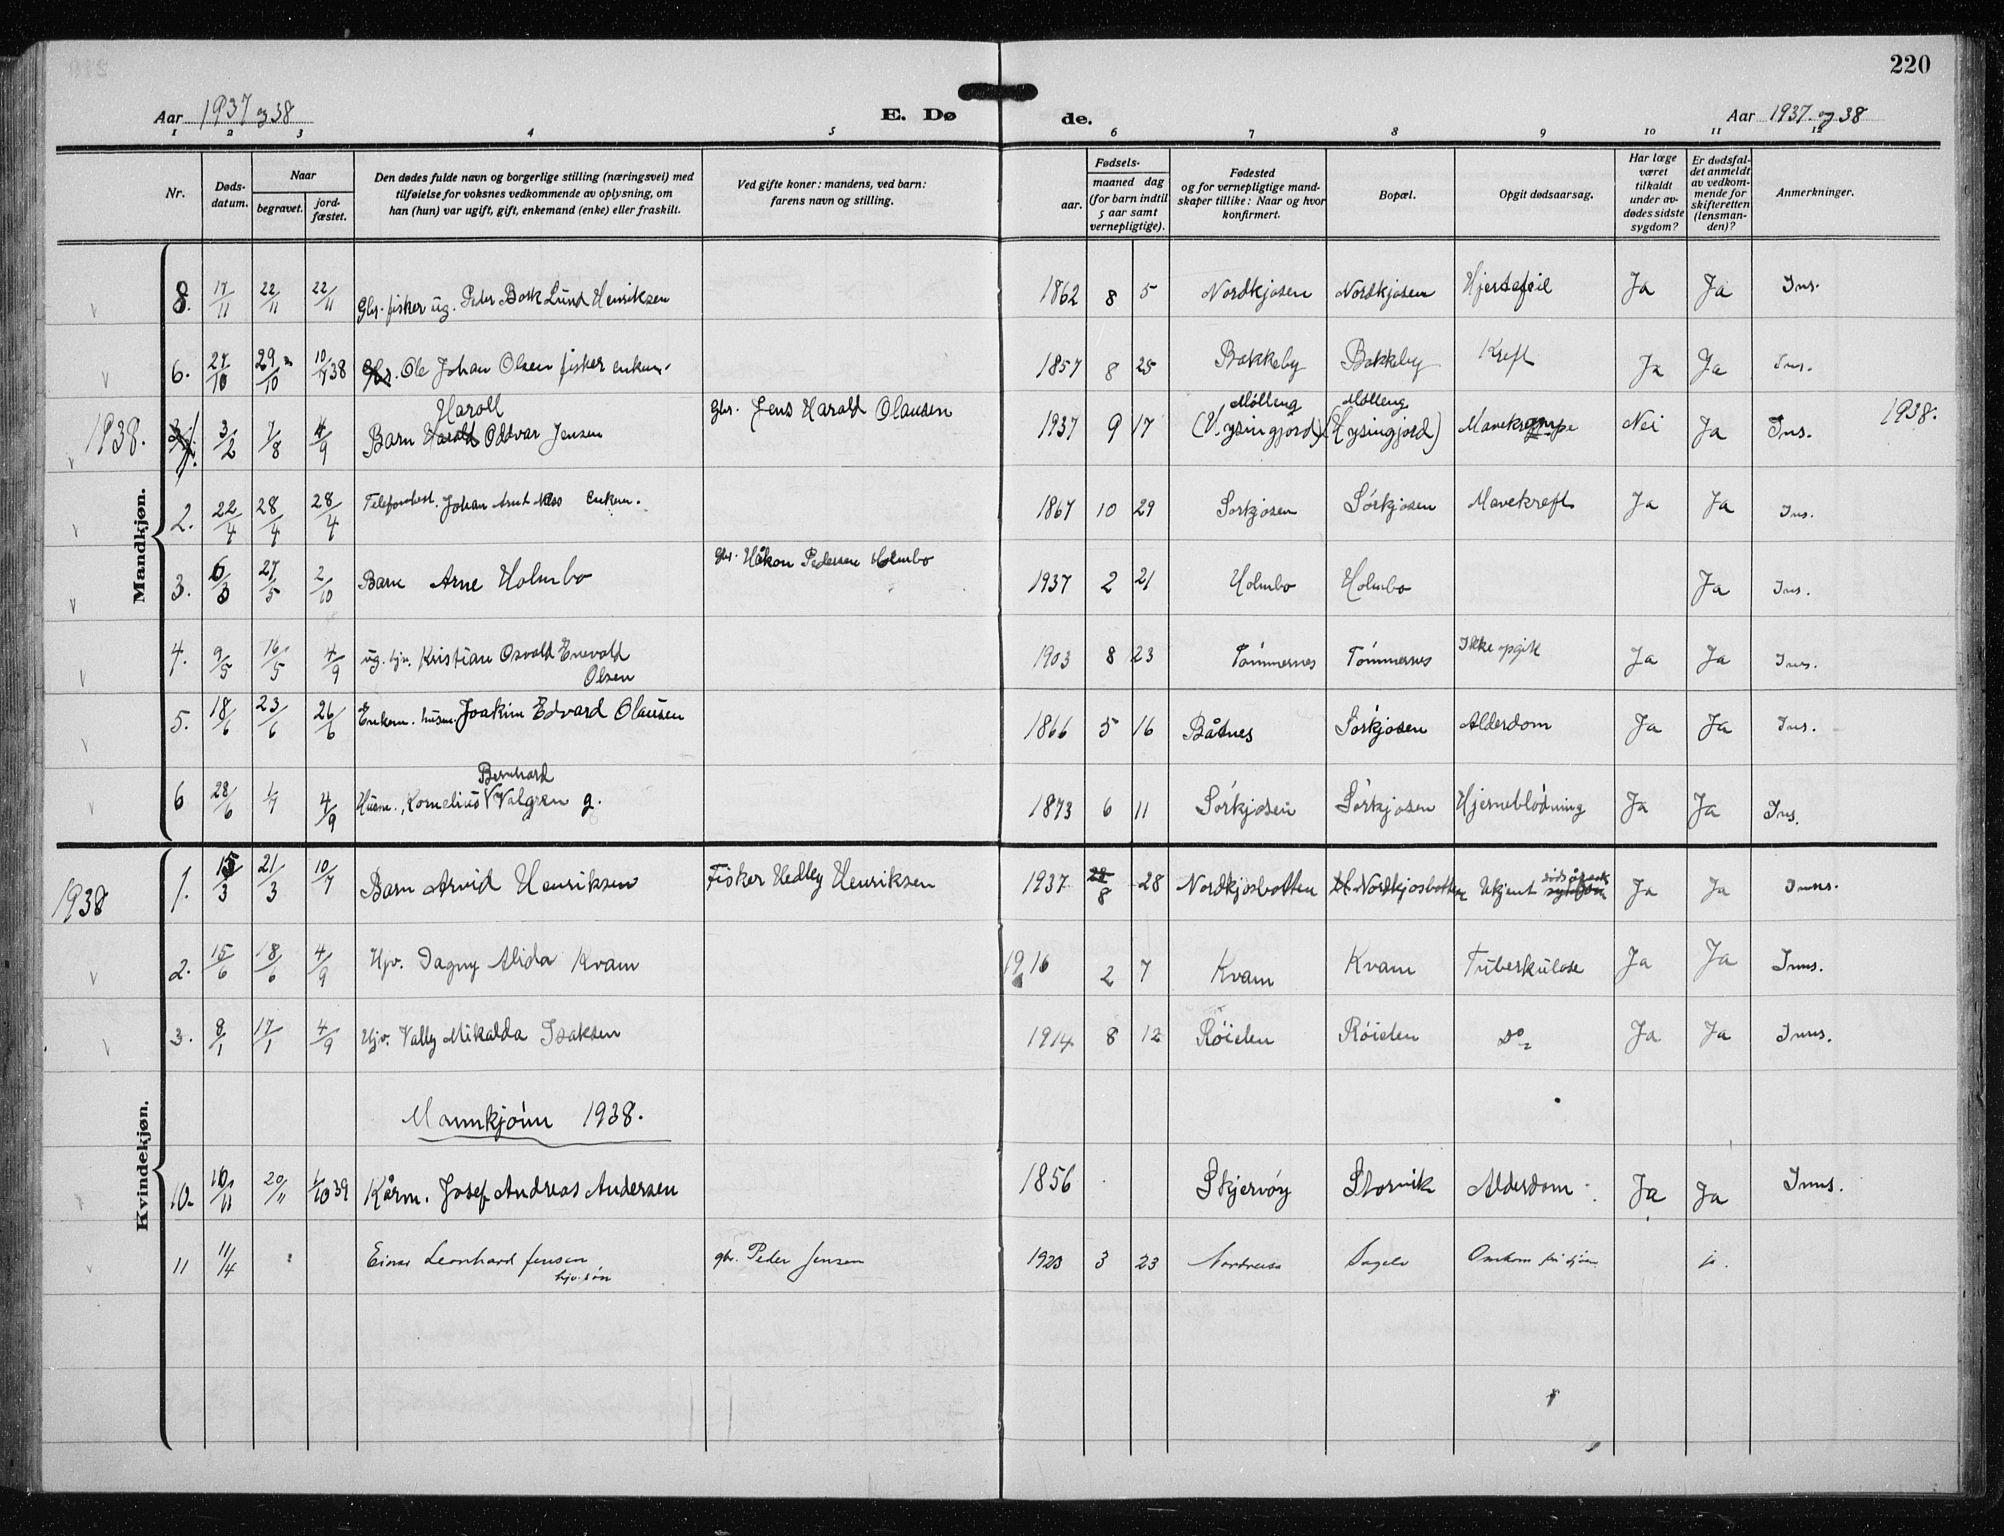 220
Aar 1937 og 38 E. Dø de. Aar 1937 og 38
1 2 3 4 5 6 7 8 9 10 11 12
Nr.
Døds-
datum.
Naar
begravet.
jord-
fæstet.
Den dødes fulde navn og borgerlige stilling (næringsvei) med
tilføielse for voksnes vedkommende av oplysning, om
han (hun) var ugift, gift, enkemand (enke) eller fraskilt.
Ved gifte koner: mandens, ved barn:
farens navn og stilling.
Fødsels-
aar.
maaned dag
(for barn indtil
5 aar samt
vernepligtige).
Fødested
og for vernepligtige mand-
skaper tillike: Naar og hvor
konfirmert.
Bopæl.
Opgit dødsaarsag.
Har læge
været
tilkaldt
under av-
dødes sidste
sygdom?
Er dødsfal-
det anmeldt
av vedkom-
mende for
skifteretten
(lensman-
den)?
Anmerkninger.
Mandkjøn.
8. 17/11 22/11 22/11 Gbr. fisker ug. Peder Bork Lund Henriksen 1862 8 5 Nordkjosen Nordkjosen Hjertefeil Ja Ja Ins.
6. 27/10 29/10 Ole Johan Olsen fisker enkem. 1857 8 25 Bakkeby Bakkeby Kreft Ja Ja Ins.
1938. 3/2 7/8 4/9 Barn Harold Harall Oddvar Jensen Gbr. Jens Harald Olausen 1937 9 17 Mølleng Mølleng Nei Ja Ins. 1938.
2. 22/4 28/4 28/4 Johan Arnt enkem. 1867 10 29 Sorkjosen Sørkjosen Mavekreft Ja Ja Ins.
3. 27/5 2/10 Barn Arne Holmbo Gbr. Håkon Pedersen Holmbo 1937 2 21 Holmbo Holmbo Ja Ins.
4. 9/5 16/5 4/9 ug. Kristian Osvald Enevold
Olsen 1903 8 23 Tømmernes Tømmernes Ikke opgit Ja Ja Ins.
5. 18/6 23/6 26/6 Enkem. husm. Joakim Edvard Olausen 1866 5 16 Båtnes Sørkjosen Alderdom Ja Ja Ins.
6 28/6 1/7 4/9 Husm. Kornelius Bernhard Valgren g. 1873 6 11 Sørkjosen Sørkjosen Hjerneblødning Ja Ja Ins.
Kvindekjøn.
1938 1. 15/3 21/3 10/7 Barn Arvid Henriksen Fisker Hedley Henriksen 1937 28 8 28 Nordkjosbotten Nordkjosbotten Ukjent Ja Ja Inns.
2. 15/6 18/6 4/9 Hjv. Dagny Alida Kvam 1916 2 7 Kvam Kvam Tuberkulose Ja Ja Inns.
3. 8/1 17/1 4/9 Hjv. Vally Mikalda Isaksen 1914 8 12 Røielen Røielen Do Ja Ja Inns.
Mannkjønn 1938.
10. 10/11 20/11 1/10 39 Kårm. Josef Andreas Andersen 1856 Skjervøy Storvik Alderdom Ja Ja Inns.
11 11/4 Einar Leonhard Jensen
hjv. søn gbr. Peder Jensen 1923 3 23 Nordreisa Omkom på sjøen ja.